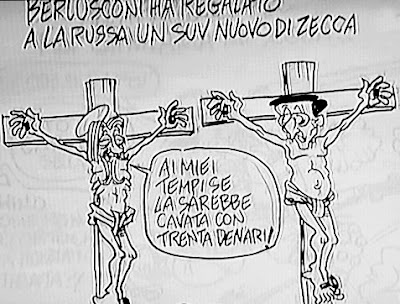 BERLUSCONI HA REGALATO
A LA RUSSA UN SUV NUOVO DI ZECCA
AI MIEI
TEMPI SE
LA SAREBBE
CAVATA CON
TRENTA DENARI!